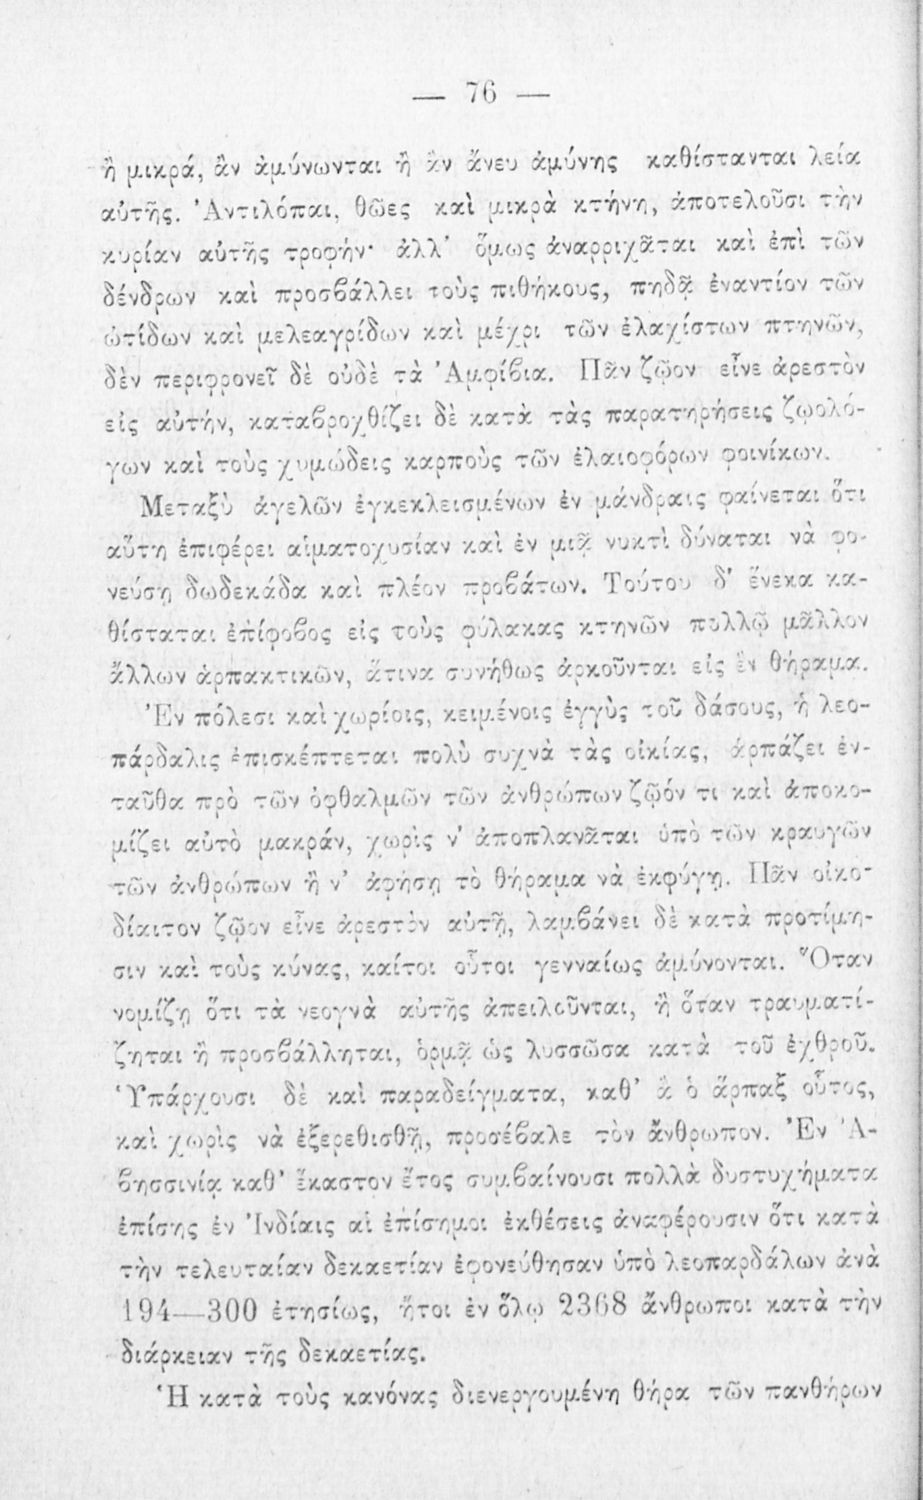 — 76 —
ἢ μικρά, ἂν ἀμύνωνται ἢ ἂν ἄνευ ἀμύνης καθίστανται λεία
αὐτῆς. Ἀντιλόπαι, θῶες καὶ μικρὰ κτήνη, ἀποτελοῦσι τὴν
κυρίαν αὐτῆς τροφήν· ἀλλ' ὅμως ἀναρριχᾶται καὶ ἐπὶ τῶν
δένδρων καὶ προσβάλλει τοὺς πιθήκους, πηδᾷ ἐναντίον τῶν
ὠτίδων καὶ μελεαγρίδων καὶ μέχρι τῶν ἐλαχίστων πτηνῶν,
δὲν περιφρονεῖ δὲ οὐδὲ τὰ Ἀμφίβια. Πᾶν ζῷον εἶνε ἀρεστὸν
εἰς αὐτήν, καταβροχθίζει δὲ κατὰ τὰς παρατηρήσεις ζῳολό-
γων καὶ τοὺς χυμώδεις καρποὺς τῶν ἐλαιοφόρων φοινίκων.
Μεταξὺ ἀγελῶν ἐγκεκλεισμένων ἐν μάνδραις φαίνεται ὅτι
αὕτη ἐπιφέρει αἱματοχυσίαν καὶ ἐν μιᾷ νυκτὶ δύναται νὰ φο-
νεύσῃ δωδεκάδα καὶ πλέον προβάτων. Τούτου δ' ἕνεκα κα-
θίσταται ἐπίφοβος εἰς τοὺς φύλακας κτηνῶν πολλῷ μᾶλλον
ἄλλων ἁρπακτικῶν, ἅτινα συνήθως ἀρκοῦνται εἰς ἓν θήραμα.
Ἐν πόλεσι καὶ χωρίοις, κειμένοις ἐγγὺς τοῦ δάσους, ἡ λεο-
πάρδαλις ἐπισκέπτεται πολὺ συχνὰ τὰς οἰκίας, ἁρπάζει ἐν-
ταῦθα πρὸ τῶν ὀφθαλμῶν τῶν ἀνθρώπων ζῷόν τι καὶ ἀποκο-
μίζει αὐτὸ μακράν, χωρὶς ν' ἀποπλανᾶται ὑπὸ τῶν κραυγῶν
τῶν ἀνθρώπων ἢ ν' ἀφήσῃ τὸ θήραμα νὰ ἐκφύγῃ. Πᾶν οἰκο-
δίαιτον ζῷον εἶνε ἀρεστὸν αὐτῇ, λαμβάνει δὲ κατὰ προτίμη-
σιν καὶ τοὺς κύνας, καίτοι οὗτοι γενναίως ἀμύνονται. Ὅταν
νομίζῃ ὅτι τὰ νεογνὰ αὐτῆς ἀπειλοῦνται, ἢ ὅταν τραυματί-
ζηται ἢ προσβάλληται, ὁρμᾷ ὡς λυσσῶσα κατὰ τοῦ ἐχθροῦ.
Ὑπάρχουσι δὲ καὶ παραδείγματα, καθ' ἃ ὁ ἅρπαξ οὗτος,
καὶ χωρὶς νὰ ἐξερεθισθῇ, προσέβαλε τὸν ἄνθρωπον. Ἐν Ἀ-
βησσινίᾳ καθ' ἕκαστον ἔτος συμβαίνουσι πολλὰ δυστυχήματα
ἐπίσης ἐν Ἰνδίαις αἱ ἐπίσημοι ἐκθέσεις ἀναφέρουσιν ὅτι κατὰ
τὴν τελευταίαν δεκαετίαν ἐφονεύθησαν ὑπὸ λεοπαρδάλων ἀνὰ
194—300 ἐτησίως, ἤτοι ἐν ὅλῳ 2368 ἄνθρωποι κατὰ τὴν
διάρκειαν τῆς δεκαετίας.
Ἡ κατὰ τοὺς κανόνας διενεργουμένη θήρα τῶν πανθήρων